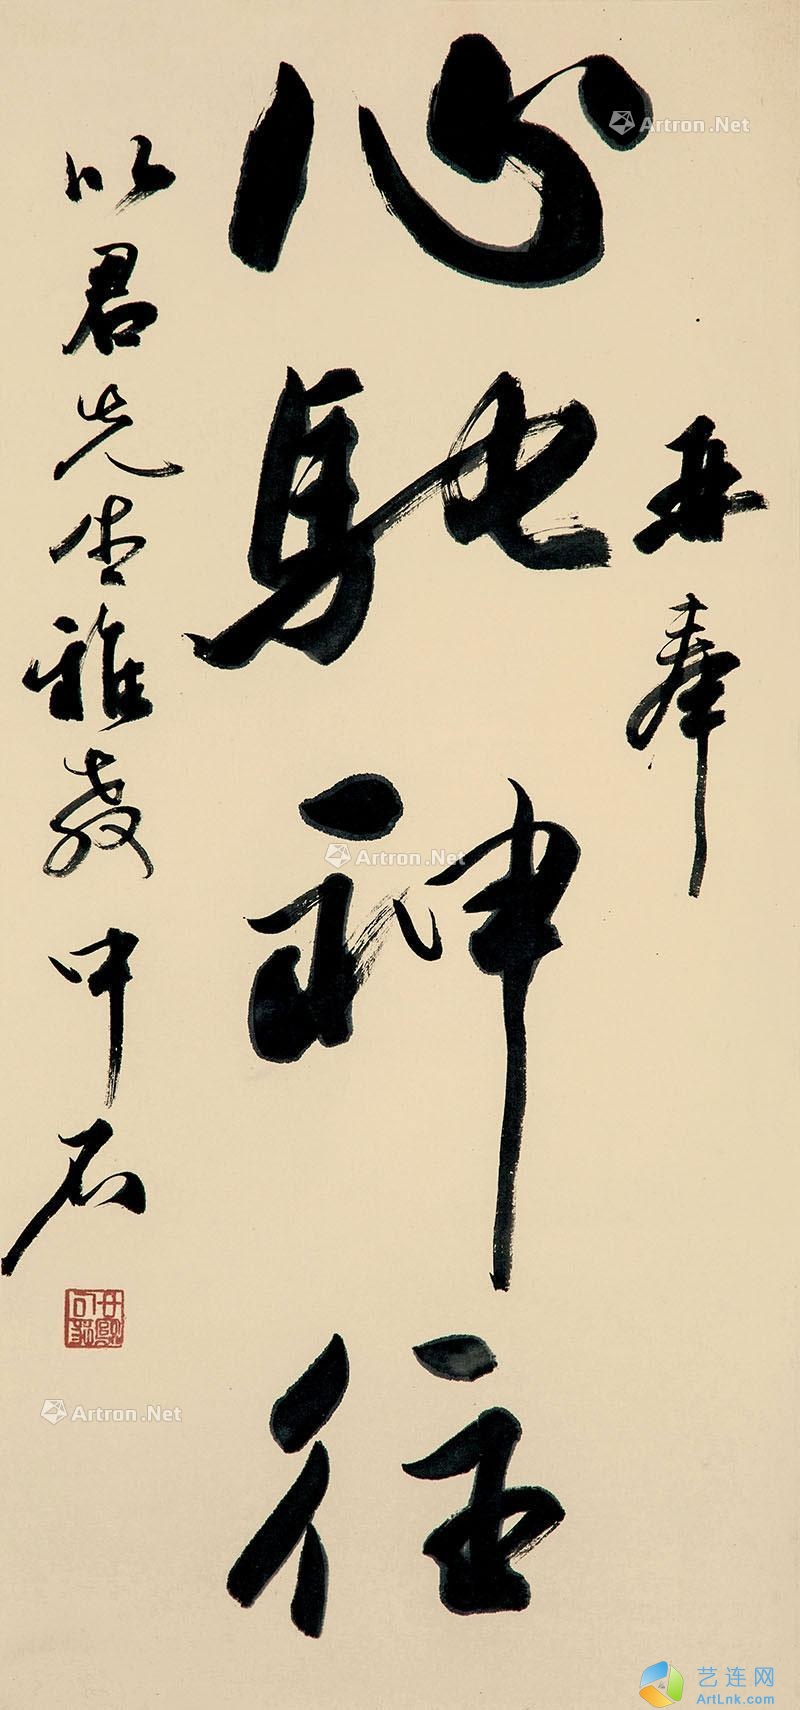 再奉
心馳神往
以君先生雅教 中石
Artron.Net
Artron.Net
Artron.Net
Artron.Net
艺连网
ArtLnk.com